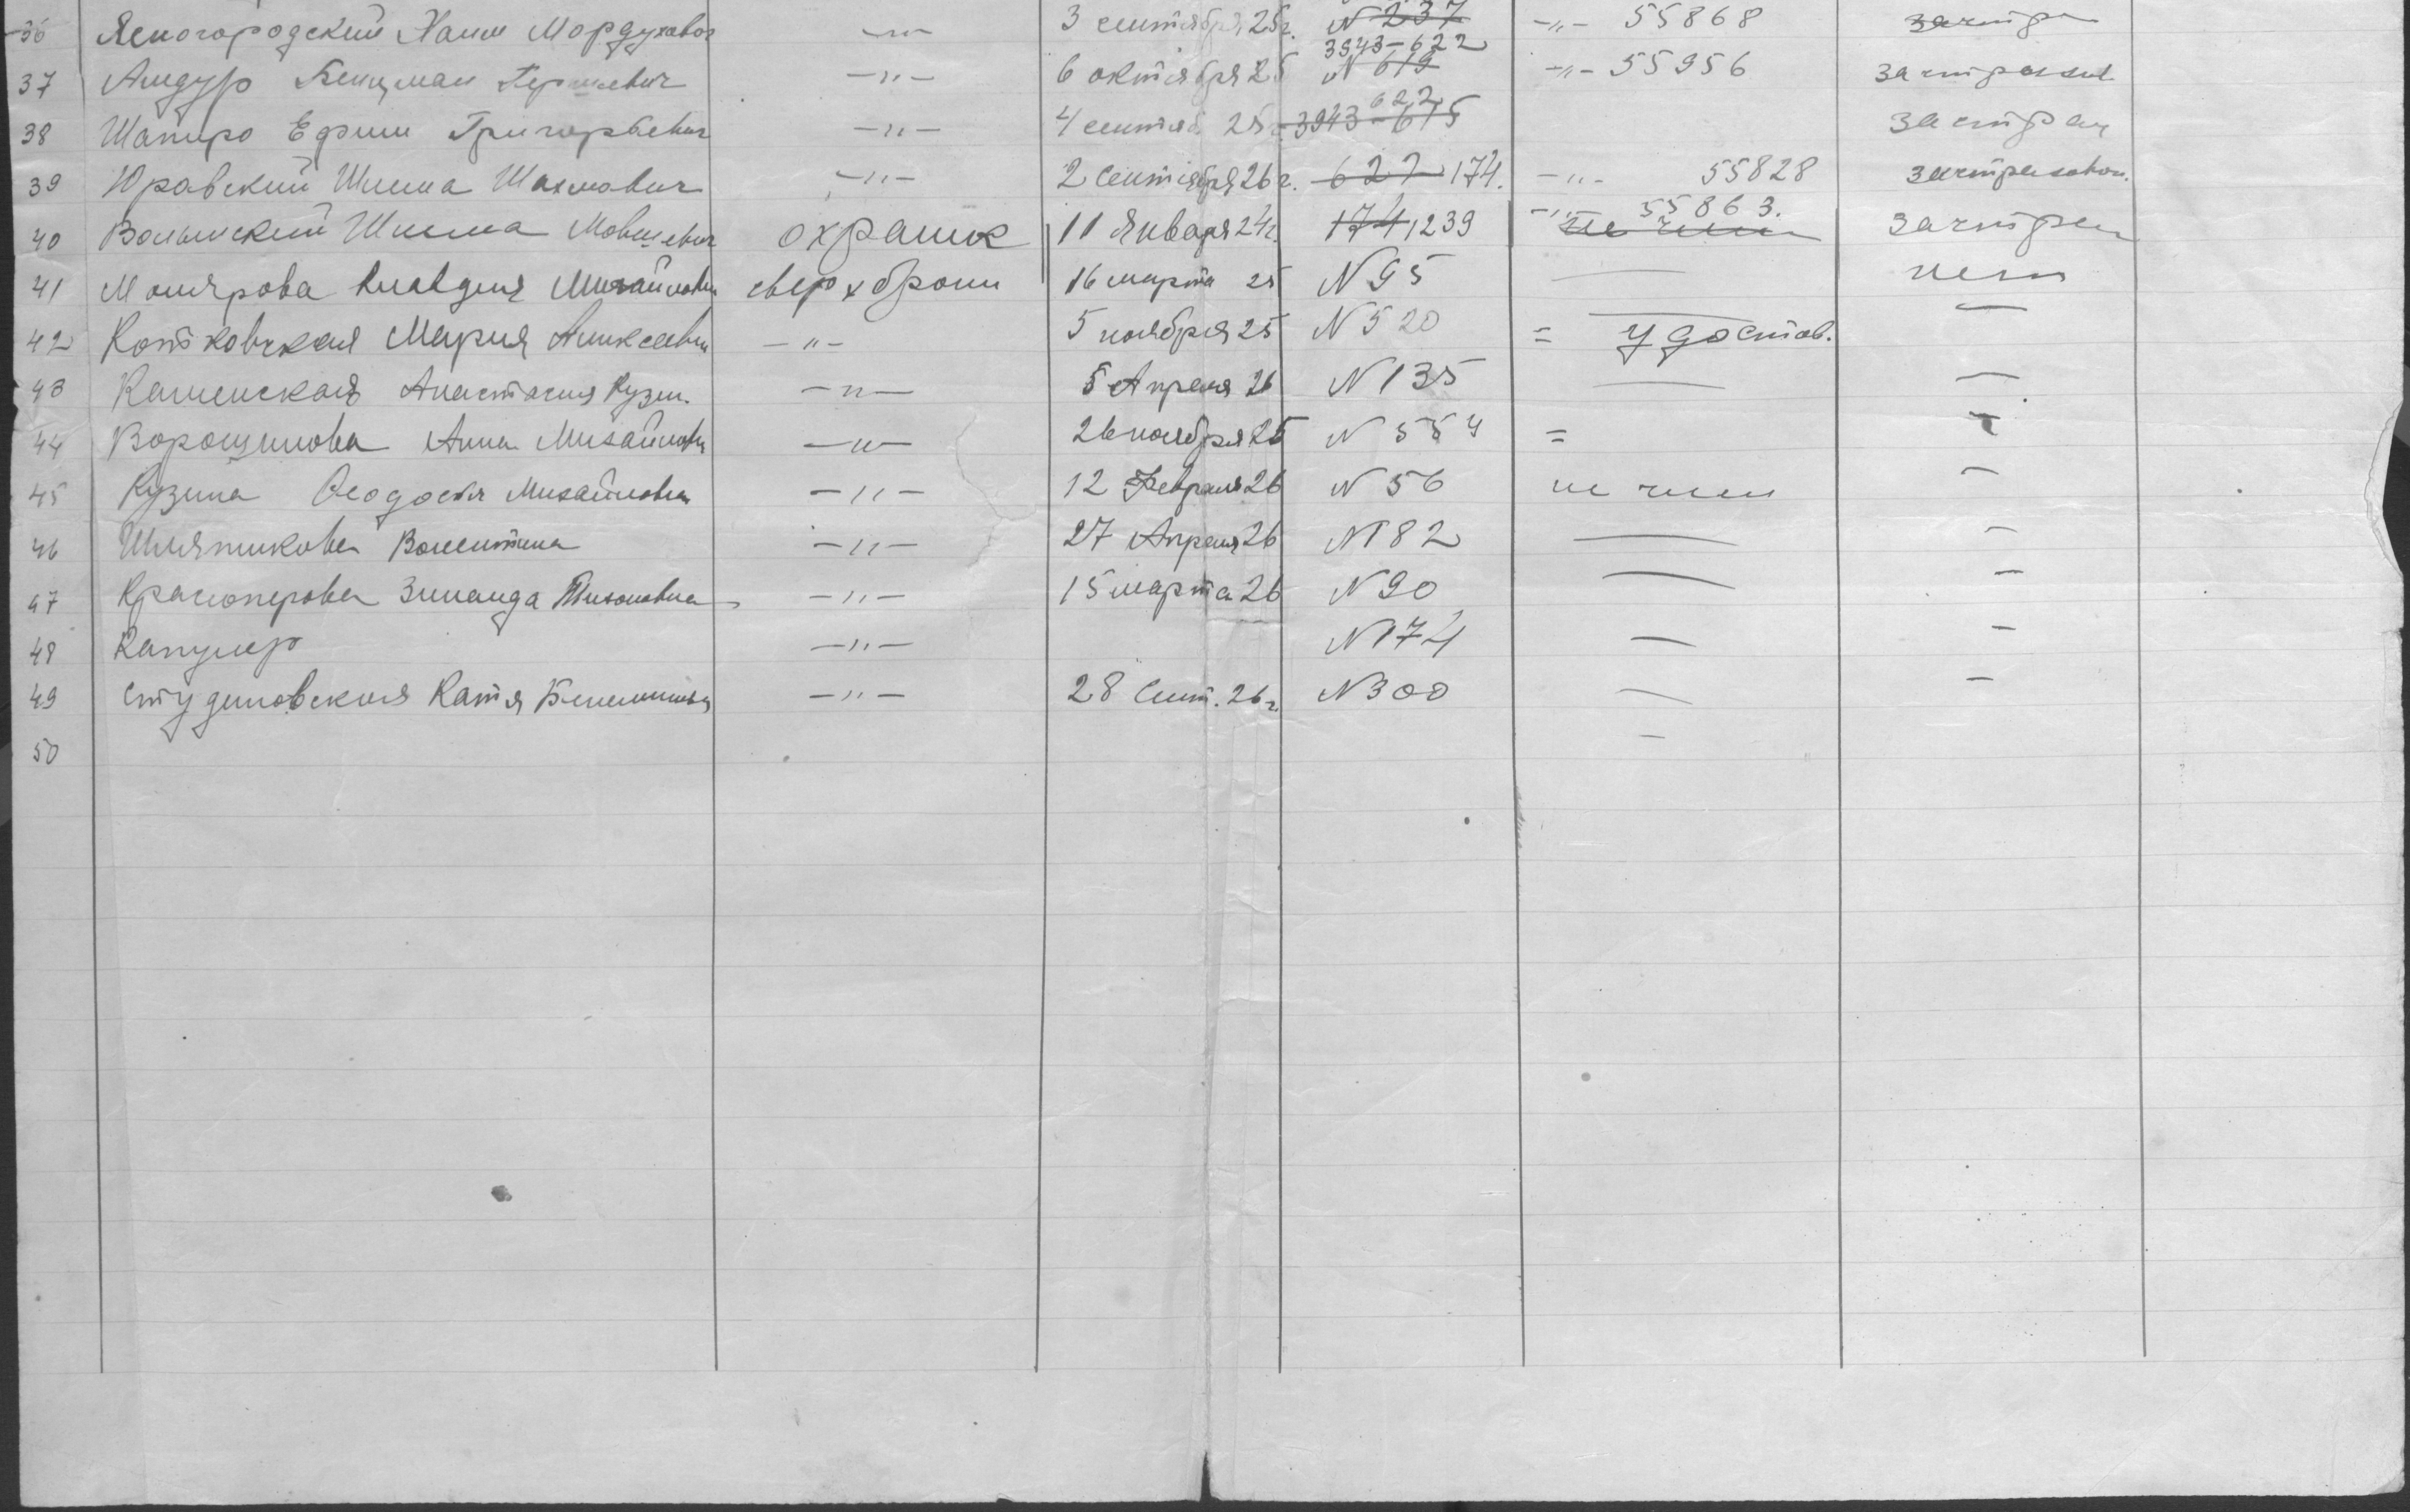 36 Ясногородский Хаим Мордухович —„— 3 сентября 25г. N 237 —„— 55868 застр
37 Андур Бенцман Гершевич —„— 6 октября 25 3943-622 N 619 —„— 55956 застрахов
38 Шапиро Ефим Григорьевич —„— 4 сентяб. 25г. 3943-615 622 застрах
39 Юравский Шлема Шахнович —„— 2 Сентября 26г. 622 174. —„— 55828 застрахован.
40 Волынский Шлема Мовшевич охраник 11 Января 24г. 174, 239 —„— 55863. не член застрах
41 Молярова Клавдия Михайловн сверх брони 16 марта 25 N 95 — нет
42 Котковская Мария Алексеевн —„— 5 ноября 25 N 520 = удостов. —
43 Каменская Анастасия Кузм. —„— 5 Апреля 26 N 135 — —
44 Ворошилова Анна Михайловн —„— 26 ноября 25 N 554 =
45 Кузина Феодосья Михайловна —„— 12 Февраля 26 N 56 не член —
46 Шляпикова Валентина —„— 27 Апреля 26 N 182 — —
47 Красноперова Зинаида Тихоновна —„— 15 марта 26 N 90 — —
48 Капулер —„— N 174 — —
49 Студеновская Катя —„— 28 Сент. 26г. N 300 — —
50 —